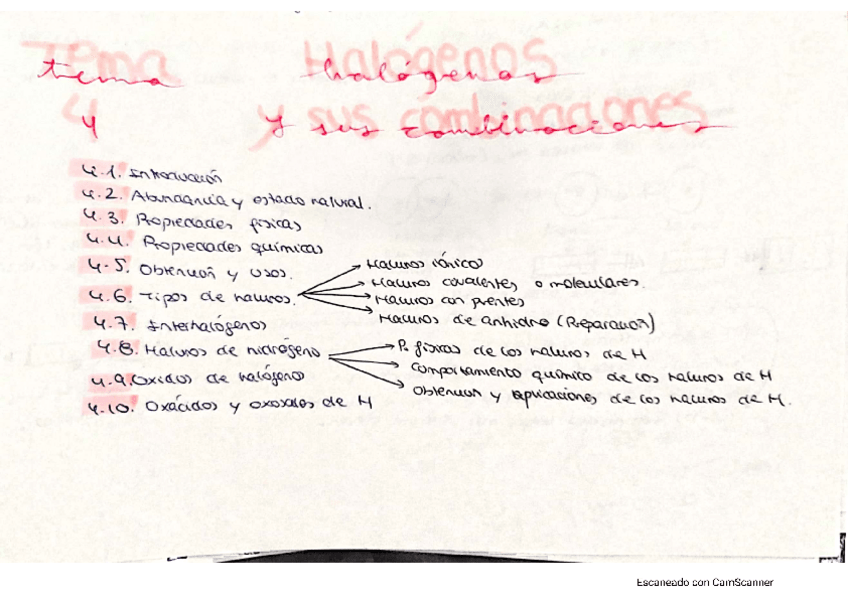 Tema Halógenos
4 y sus combinaciones
4.1. Introducción
4.2. Abundancia y estado natural.
4.3. Propiedades físicas
4.4. Propiedades químicas
4.5. Obtención y usos.
4.6. Tipos de haluros.
Haluros iónico
Haluros covalentes o moleculares.
Haluros con puentes
Haluros de anhidro (Reparación)
4.7. Interhalógenos
4.8. Haluros de hidrógeno
P. físicas de los haluros de H
Comportamiento químico de los haluros de H
Obtención y aplicaciones de los haluros de H.
4.9. Oxidos de halógeno
4.10. Oxácidos y oxosales de H
Escaneado con CamScanner